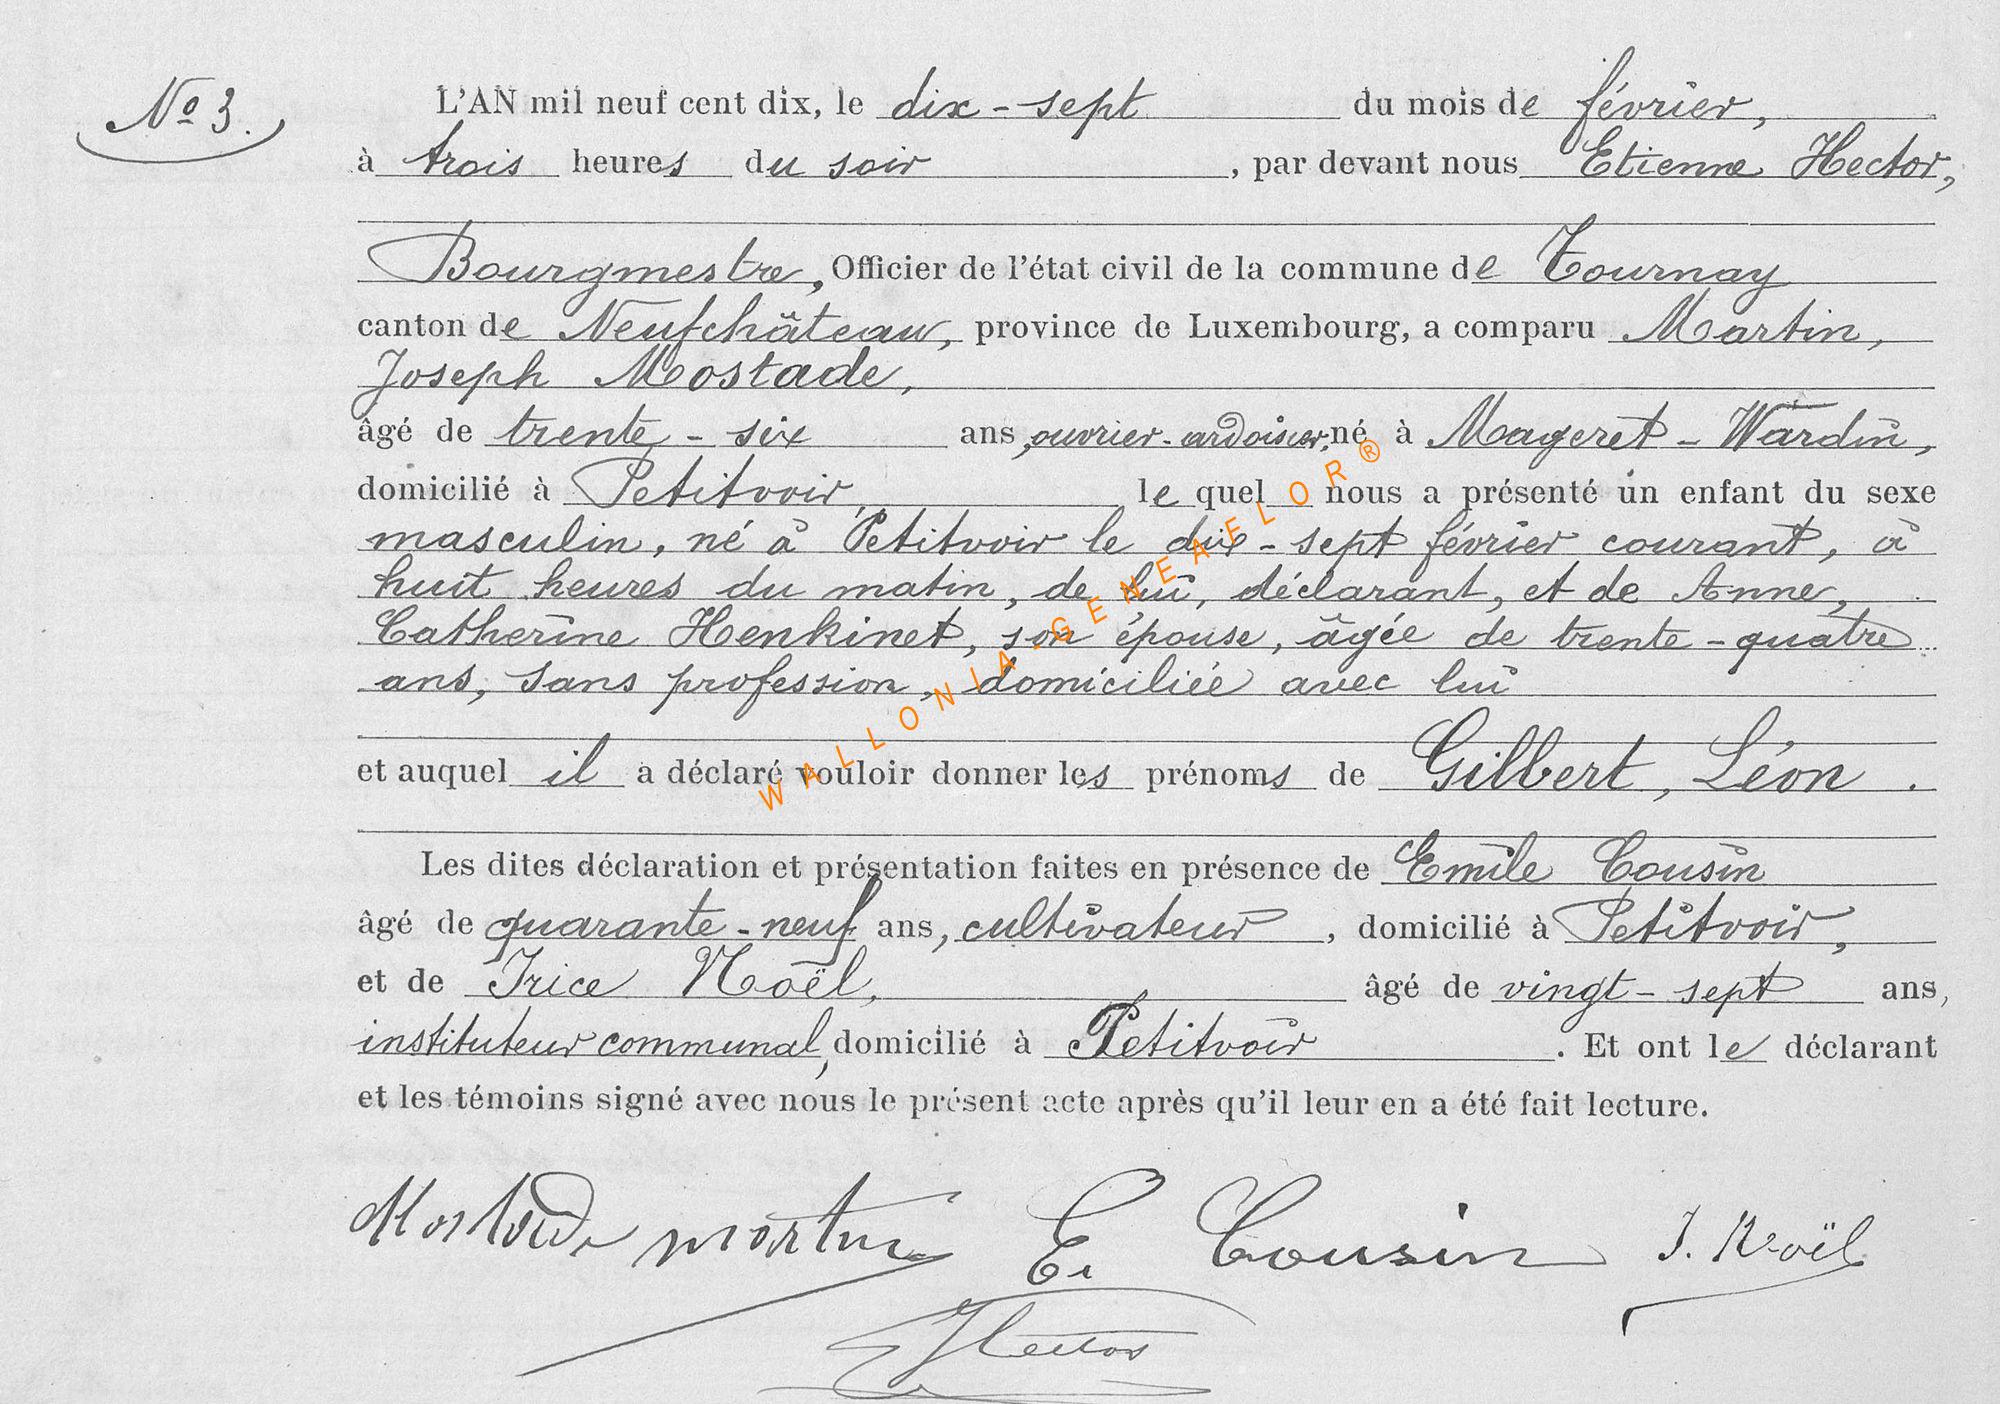 Nº 3.
L'AN mil neuf cent dix, le dix-sept du mois de février,
à trois heures du soir, par devant nous Etienne Hector,
Bourgmestre, Officier de l'état civil de la commune de Tournay
canton de Neufchâteau, province de Luxembourg, a comparu Martin,
Joseph Mostade,
âgé de trente-six ans, ouvrier-ardoisier, né à Mageret-Wardin,
domicilié à Petitvoir, le quel nous a présenté un enfant du sexe
masculin, né à Petitvoir le dix-sept février courant, à
huit heures du matin, de lui, déclarant, et de Anne,
Catherine Henkinet, son épouse, âgée de trente-quatre
ans, sans profession, domiciliée avec lui
et auquel il a déclaré vouloir donner les prénoms de Gilbert, Léon.
Les dites déclaration et présentation faites en présence de Emile Cousin
âgé de quarante-neuf ans, cultivateur, domicilié à Petitvoir,
et de Irice Noël, âgé de vingt-sept ans,
instituteur communal, domicilié à Petitvoir. Et ont le déclarant
et les témoins signé avec nous le présent acte après qu'il leur en a été fait lecture.
Mostade martin E. Cousin J. Noël
Hector
WALLONIA-GENEAFLOR®